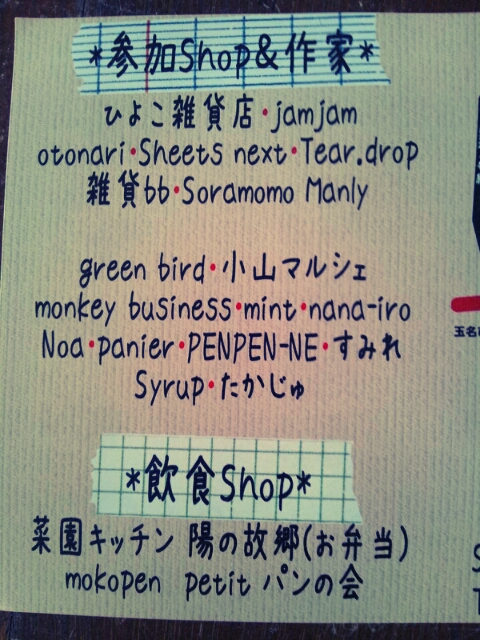 *参加Shop&作家*
ひよこ雑貨店・jamjam
otonari・Sheets next・Tear.drop
雑貨bb・Soramomo Manly
green bird・小山マルシェ
monkey business・mint・nana-iro
Noa・panier・PENPEN-NE・すみれ
Syrup・たかじゅ
*飲食Shop*
菜園キッチン 陽の故郷(お弁当)
mokopen petit パンの会
玉名